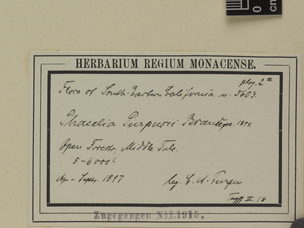 0
cm
HERBARIUM REGIUM MONACENSE.
Flora of South-Eastern California n. 5603.
Phacelia Purpusii Brandegee
Open Forests, Middle Tule.
5-6000'
Apr - Septbr. 1897
leg. C. A. Purpus
Zugegangen XII.1915.